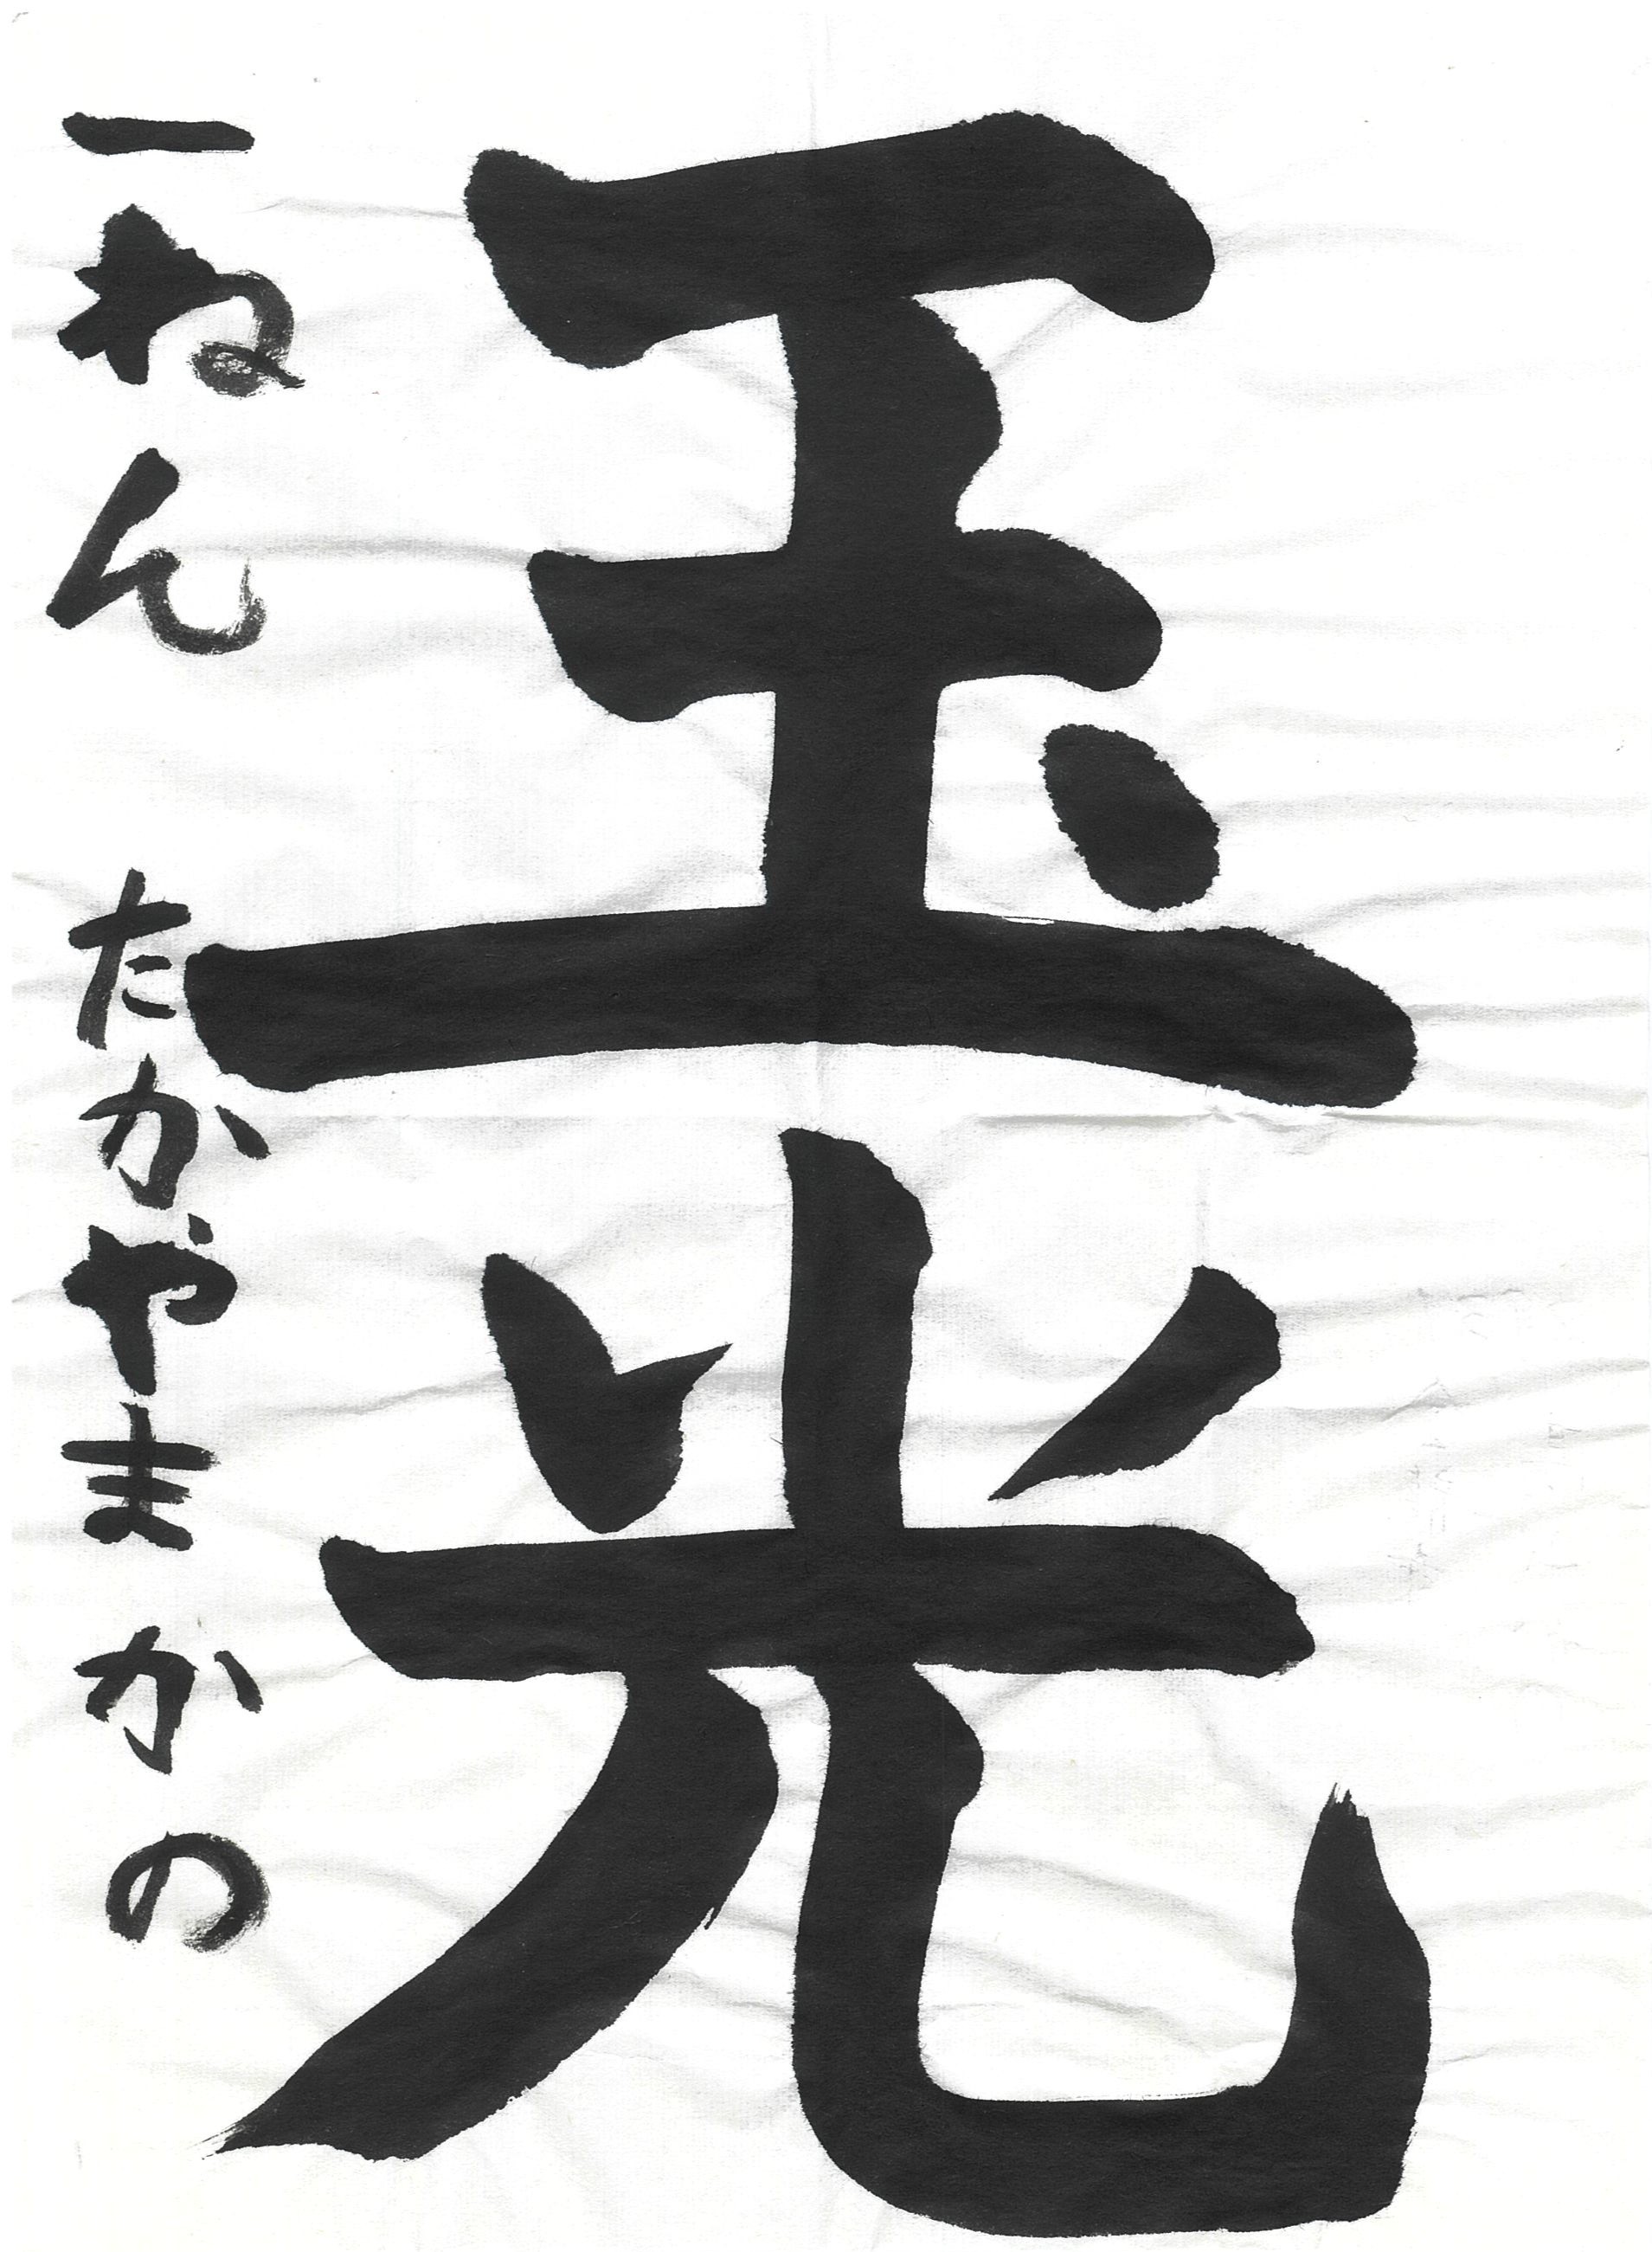 玉光
一ねん たかやま かの